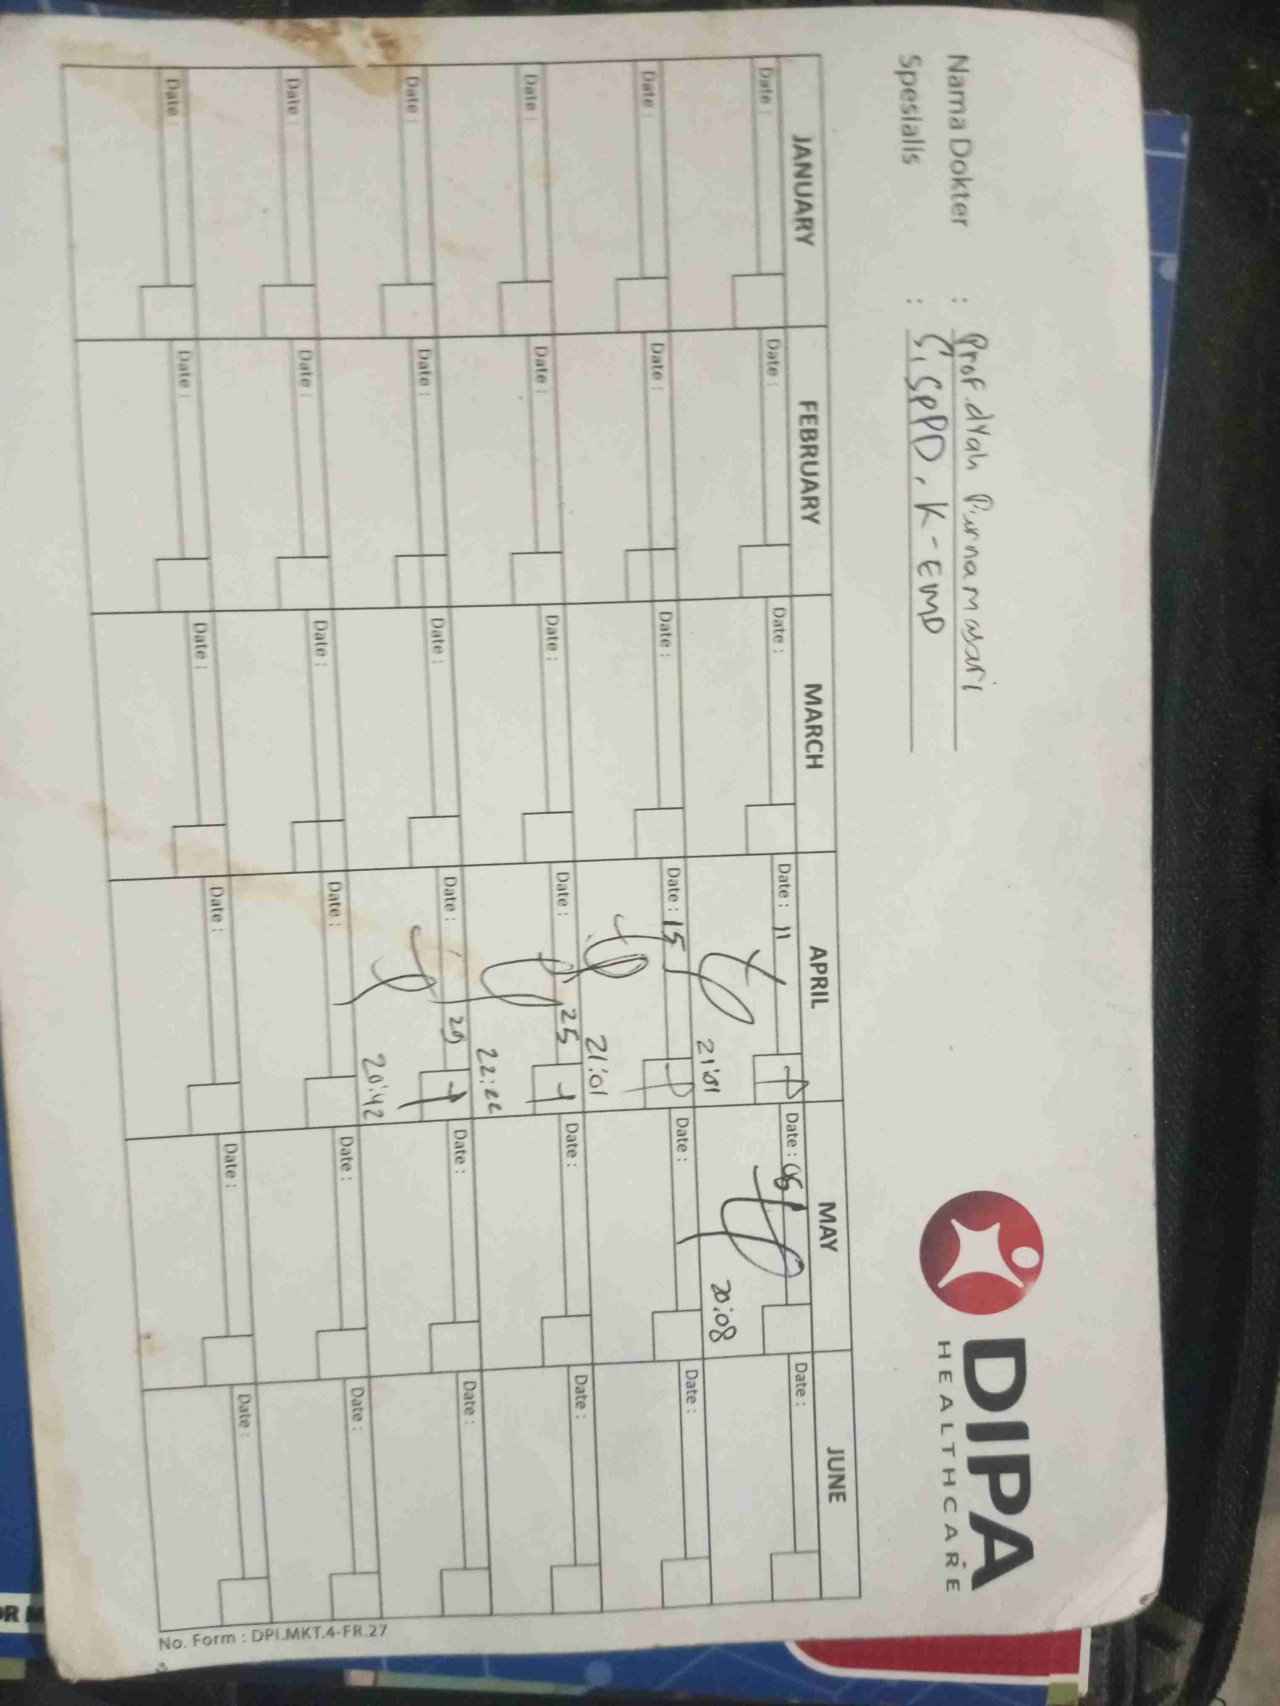 Nama Dokter : Prof. dyah Purnamasari
Spesialis : S, SpPD, K-EMD
DIPA
HEALTHCARE
JANUARY FEBRUARY MARCH APRIL MAY JUNE
Date : Date : Date : Date : 11 Date : 06 Date :
21:01 20:08
Date : Date : Date : Date : 15 Date : Date :
21:01
Date : Date : Date : Date : 25 Date : Date :
Date : Date : Date : Date : 29 Date : Date :
20:42
Date : Date : Date : Date : Date : Date :
Date : Date : Date : Date : Date : Date :
No. Form : DPI.MKT.4-FR.27